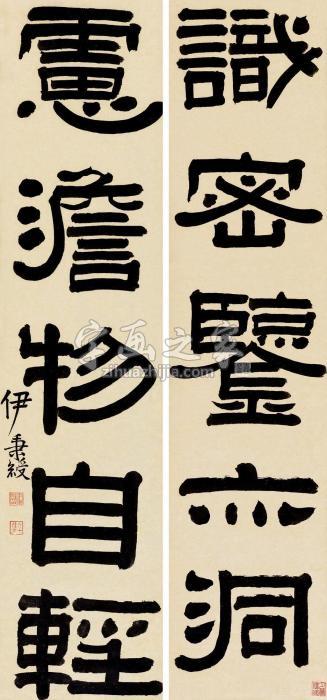 識密鑒亦洞
慮澹物自輕
伊秉綬
字画之家
zihuazhijia.com